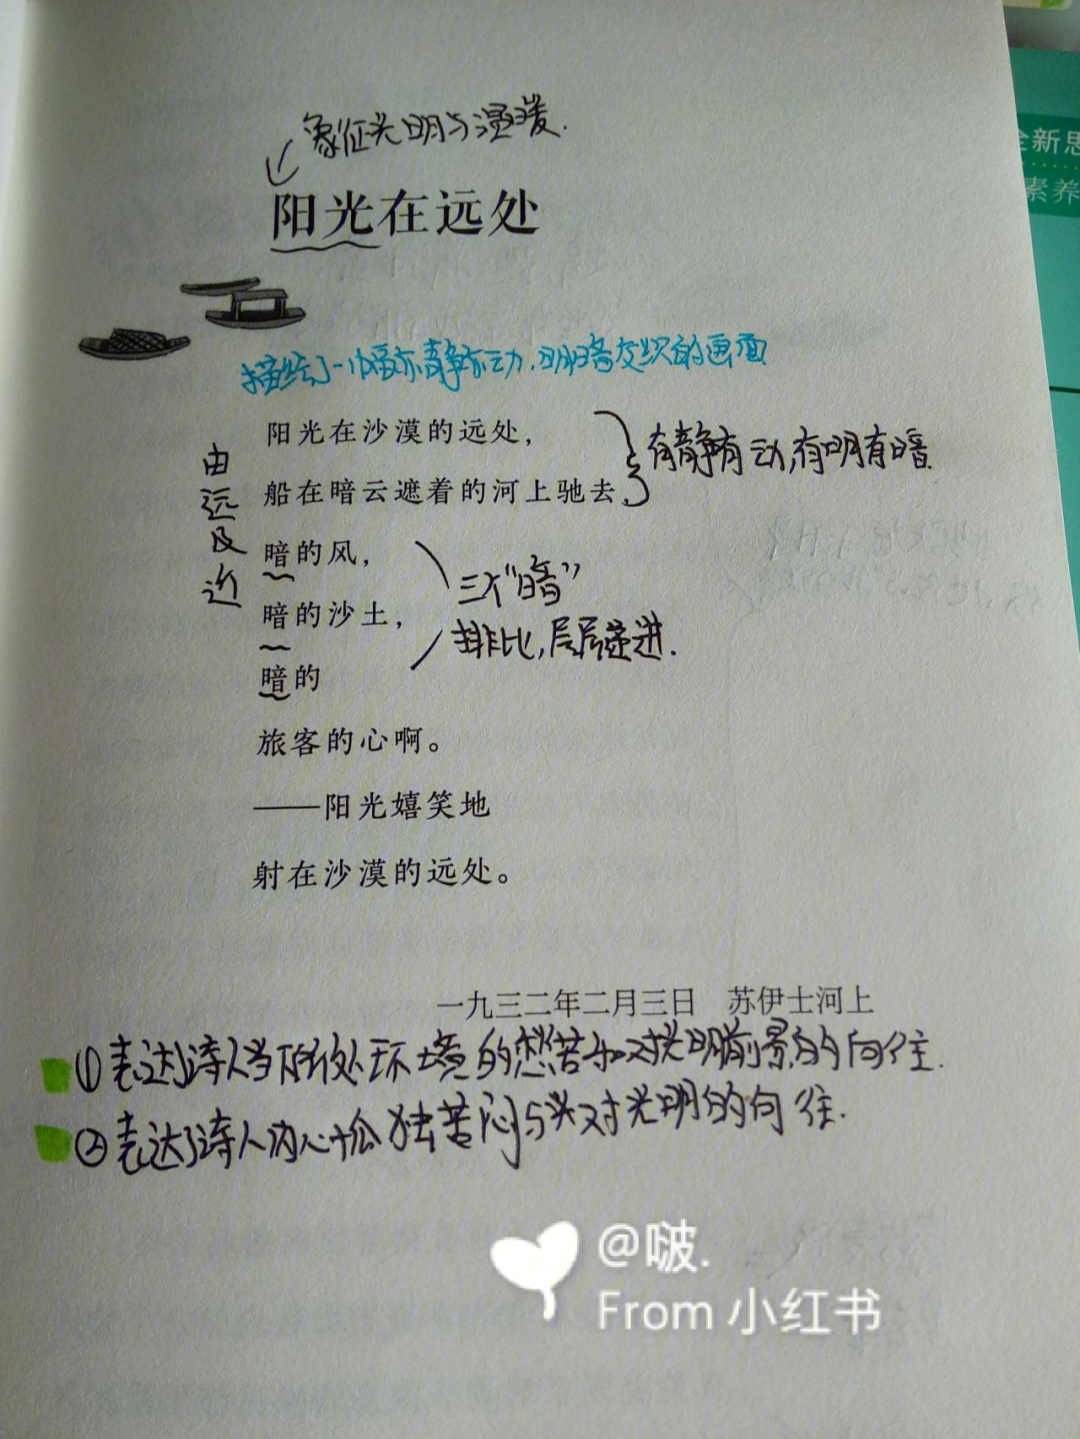 象征光明与温暖.
阳光在远处
全新思
素养
描绘了一幅亦静亦动、明暗交织的画面
阳光在沙漠的远处，
船在暗云遮着的河上驰去，
有静有动,有明有暗.
由远及近
暗的风，
暗的沙土，
暗的
三个“暗”
排比,层层递进.
旅客的心啊。
——阳光嬉笑地
射在沙漠的远处。
一九三二年二月三日 苏伊士河上
①表达了诗人当所处环境的愁苦和对光明前景的向往.
②表达了诗人内心孤独苦闷与对光明的向往.
@啵.
From 小红书